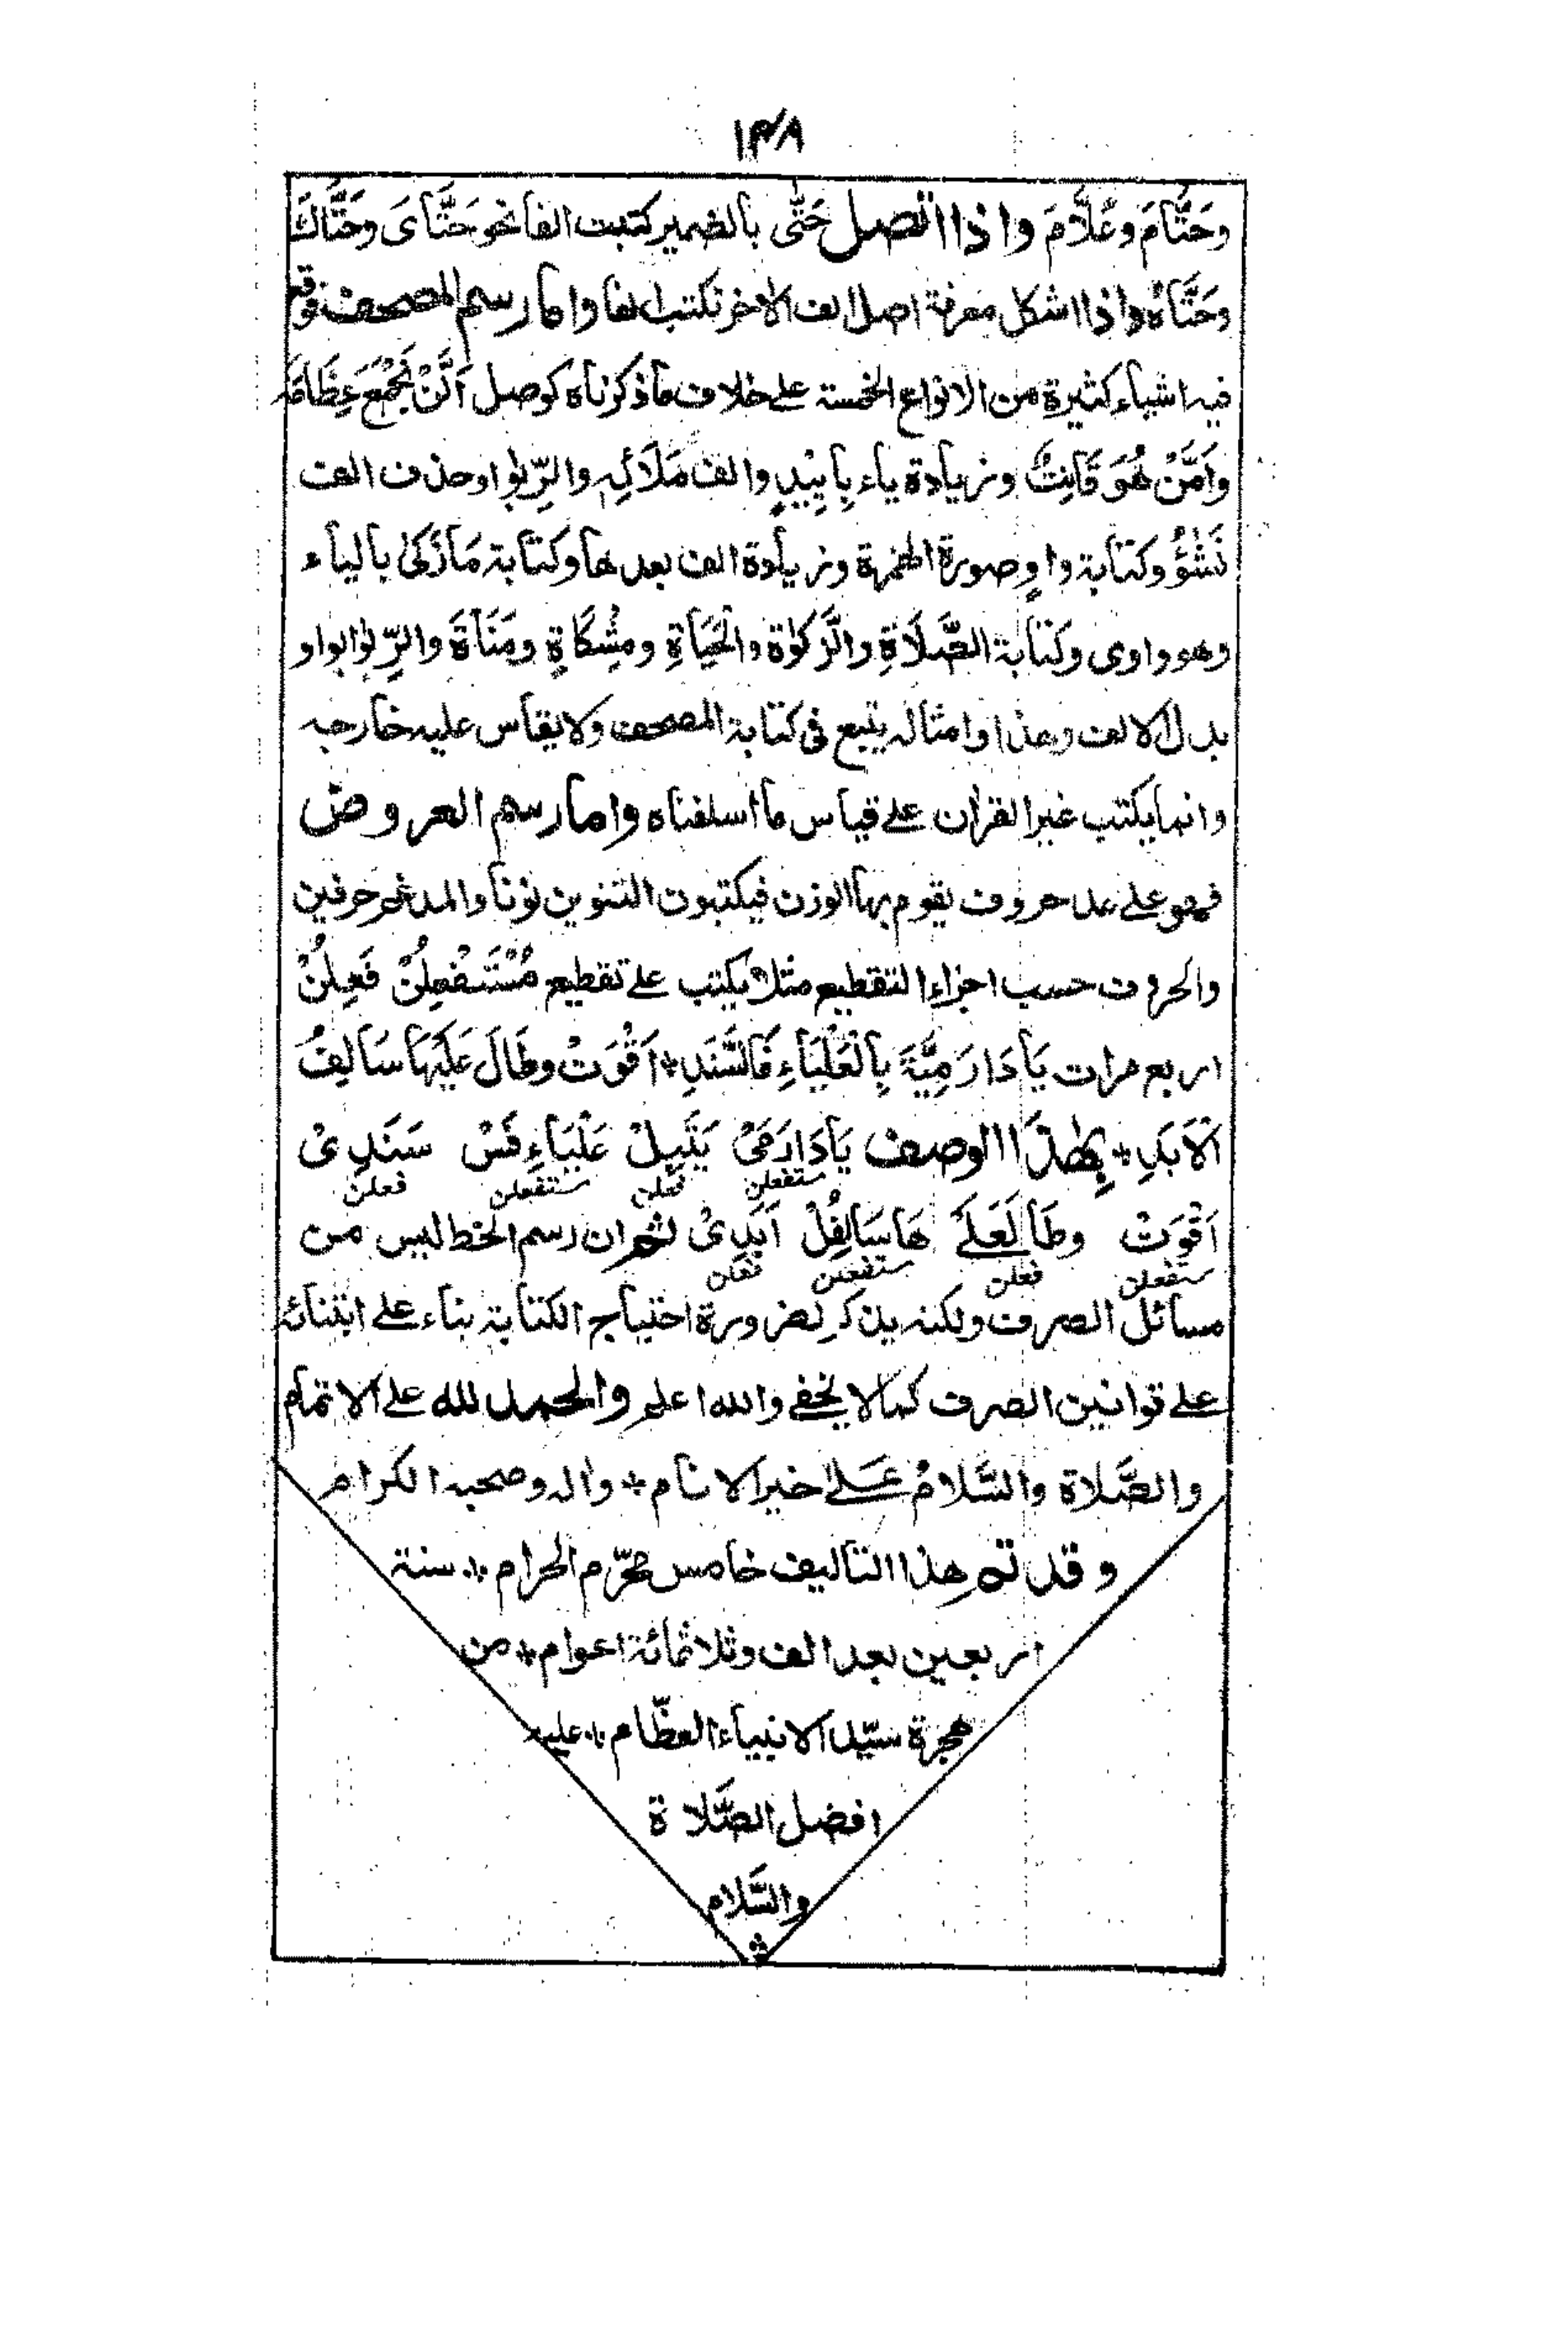 ١٣٨
وحَتَّامَ وعَلَّامَ واذا اتصل حَتّٰى بالضمير كتبت الفا نحو حَتَّاىَ وحَتَّاكَ
وحَتَّاهُ واذا اشكل معرفة اصل الف الاخر تكتب الفا واما رسم المصحف فوقع
فيه اشياء كثيرة من الانواع الخمسة على خلاف ما ذكرناه كوصل اَلَّنْ نَجْمَعَ عِظَامَهٗ
وَاَمَّنْ هُوَ قَانِتٌ وزيادة ياء بِاَيْيدٍ والف مَلَائِه والرِّبٰوا وحذف الف
نَشٰؤُ وكتابة واوٍ صورة الهمزة وزيادة الف بعدها وكتابة مَازَكىٰ بالياء
وهو واوى وكتابة الصَّلَاةِ والزَّكٰوة والْحَيَاةِ ومِشْكَاةٍ ومَنَاةَ والرِّبٰوا بواو
بدل الالف وهذا وامثاله يتبع فى كتابة المصحف ولا يقاس عليه خارجه
وانما يكتب غير القراٰن على قياس ما اسلفناه واما رسم العروض
فهو على عد حروف يقوم بها الوزن فيكتبون التنوين نونا والمدغم حرفين
والحروف حسب اجزاء التقطيع مثلا يكتب على تقطيع مُسْتَفْعِلُنْ فَعِلُنْ
اربع مرات يَادَارَ مِيَّةَ بِالْعَلْيَاءِ فَالسَّنَدِ * اَقْوَتْ وطَالَ عَلَيْهَا سَالِفُ
الْاَبَدِ * بِهٰذَا الوصف يَادَارَمَىْ يَتَبِلْ عَلْيَاءِ فَسْ سَنَدِىْ
مستفعلن فعلن مستفعلن فعلن
اَقْوَتْ وطَا لَعَلَىْ هَاسَالِفُلْ اَبَدِىْ ثم ان رسم الخط ليس من
مستفعلن فعلن مستفعلن فعلن
مسائل الصرف ولكنه يذكر لضرورة احتياج الكتابة بناء على ابتنائه
على قوانين الصرف كما لا يخفى والله اعلم والحمد لله على الاتمام
والصَّلاة والسَّلامُ عَلىٰ خير الانام * واٰله وصحبه الكرام
وقد تم هذا التاليف خامس محرّم الحرام * سنة
اربعين بعد الف وثلاثمائة اعوام * من
هجرة سيّد الانبياء العظّام * عليه
افضل الصَّلاة
والسَّلام